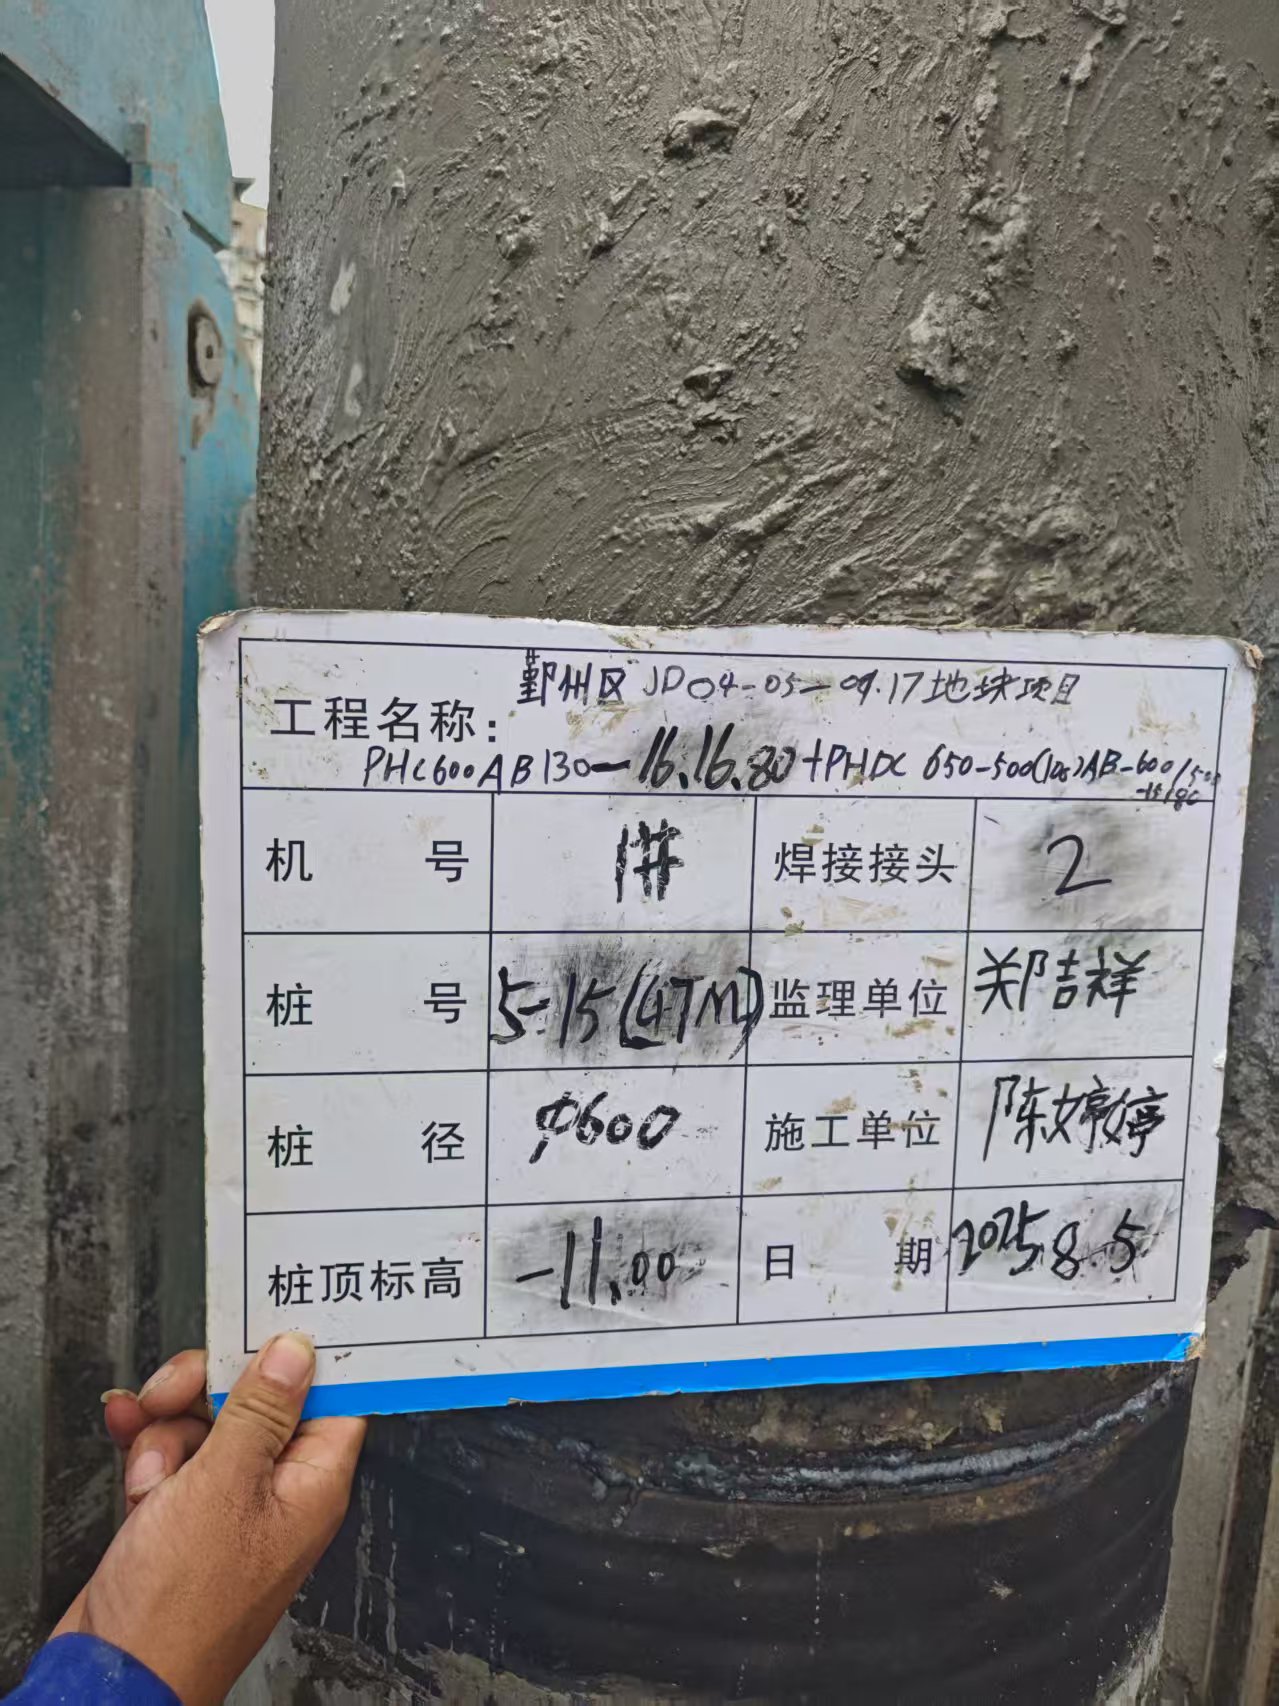 工程名称: 鄞州区 JD04-05-09.17地块项目
PHC600AB130-16.16.80+PHDC 650-500(105)AB-600/500
机号 1# 焊接接头 2
桩号 5-15(47M) 监理单位 郑吉祥
桩径 φ600 施工单位 陈婷婷
桩顶标高 -11.00 日期 2025.8.5